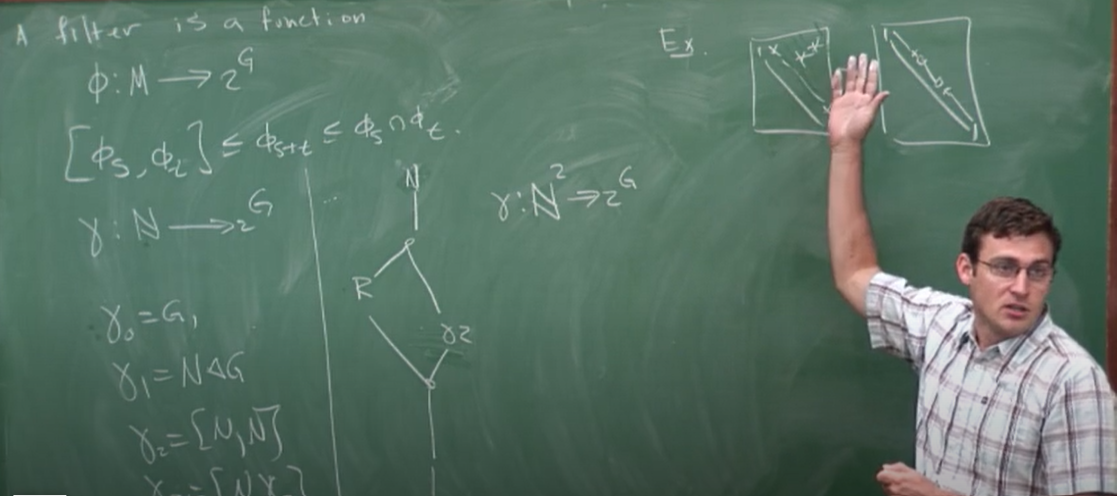 A filter is a function
ϕ: M → 2^G
[ϕ_s, ϕ_t] ≤ ϕ_{s+t} ≤ ϕ_s ∩ ϕ_t.
γ: ℕ → 2^G
γ_0 = G,
γ_1 = N ⊲ G
γ_2 = [N, N]
N
R
γ2
γ: ℕ^2 → 2^G
Ex.